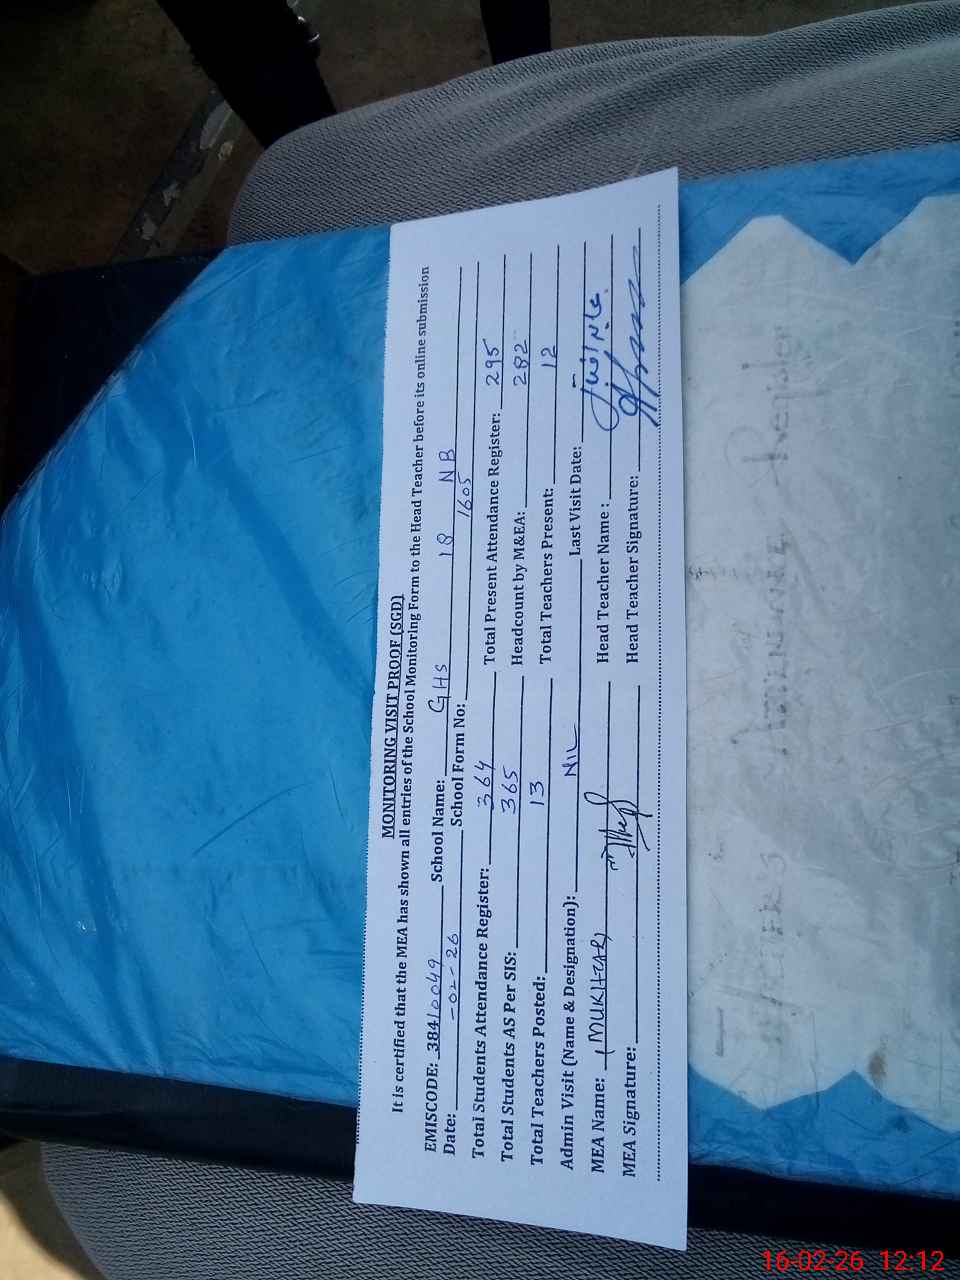 MONITORING VISIT PROOF (SGD)
It is certified that the MEA has shown all entries of the School Monitoring Form to the Head Teacher before its online submission
EMISCODE: 38410049 School Name: GHS 18 NB
Date: -02-26 School Form No: 1605
Total Students Attendance Register: 364 Total Present Attendance Register: 295
Total Students AS Per SIS: 365 Headcount by M&EA: 282
Total Teachers Posted: 13 Total Teachers Present: 12
Admin Visit (Name & Designation): NIL Last Visit Date: -
MEA Name: MUKHTAR Head Teacher Name :
MEA Signature: Head Teacher Signature:
16-02-26 12:12